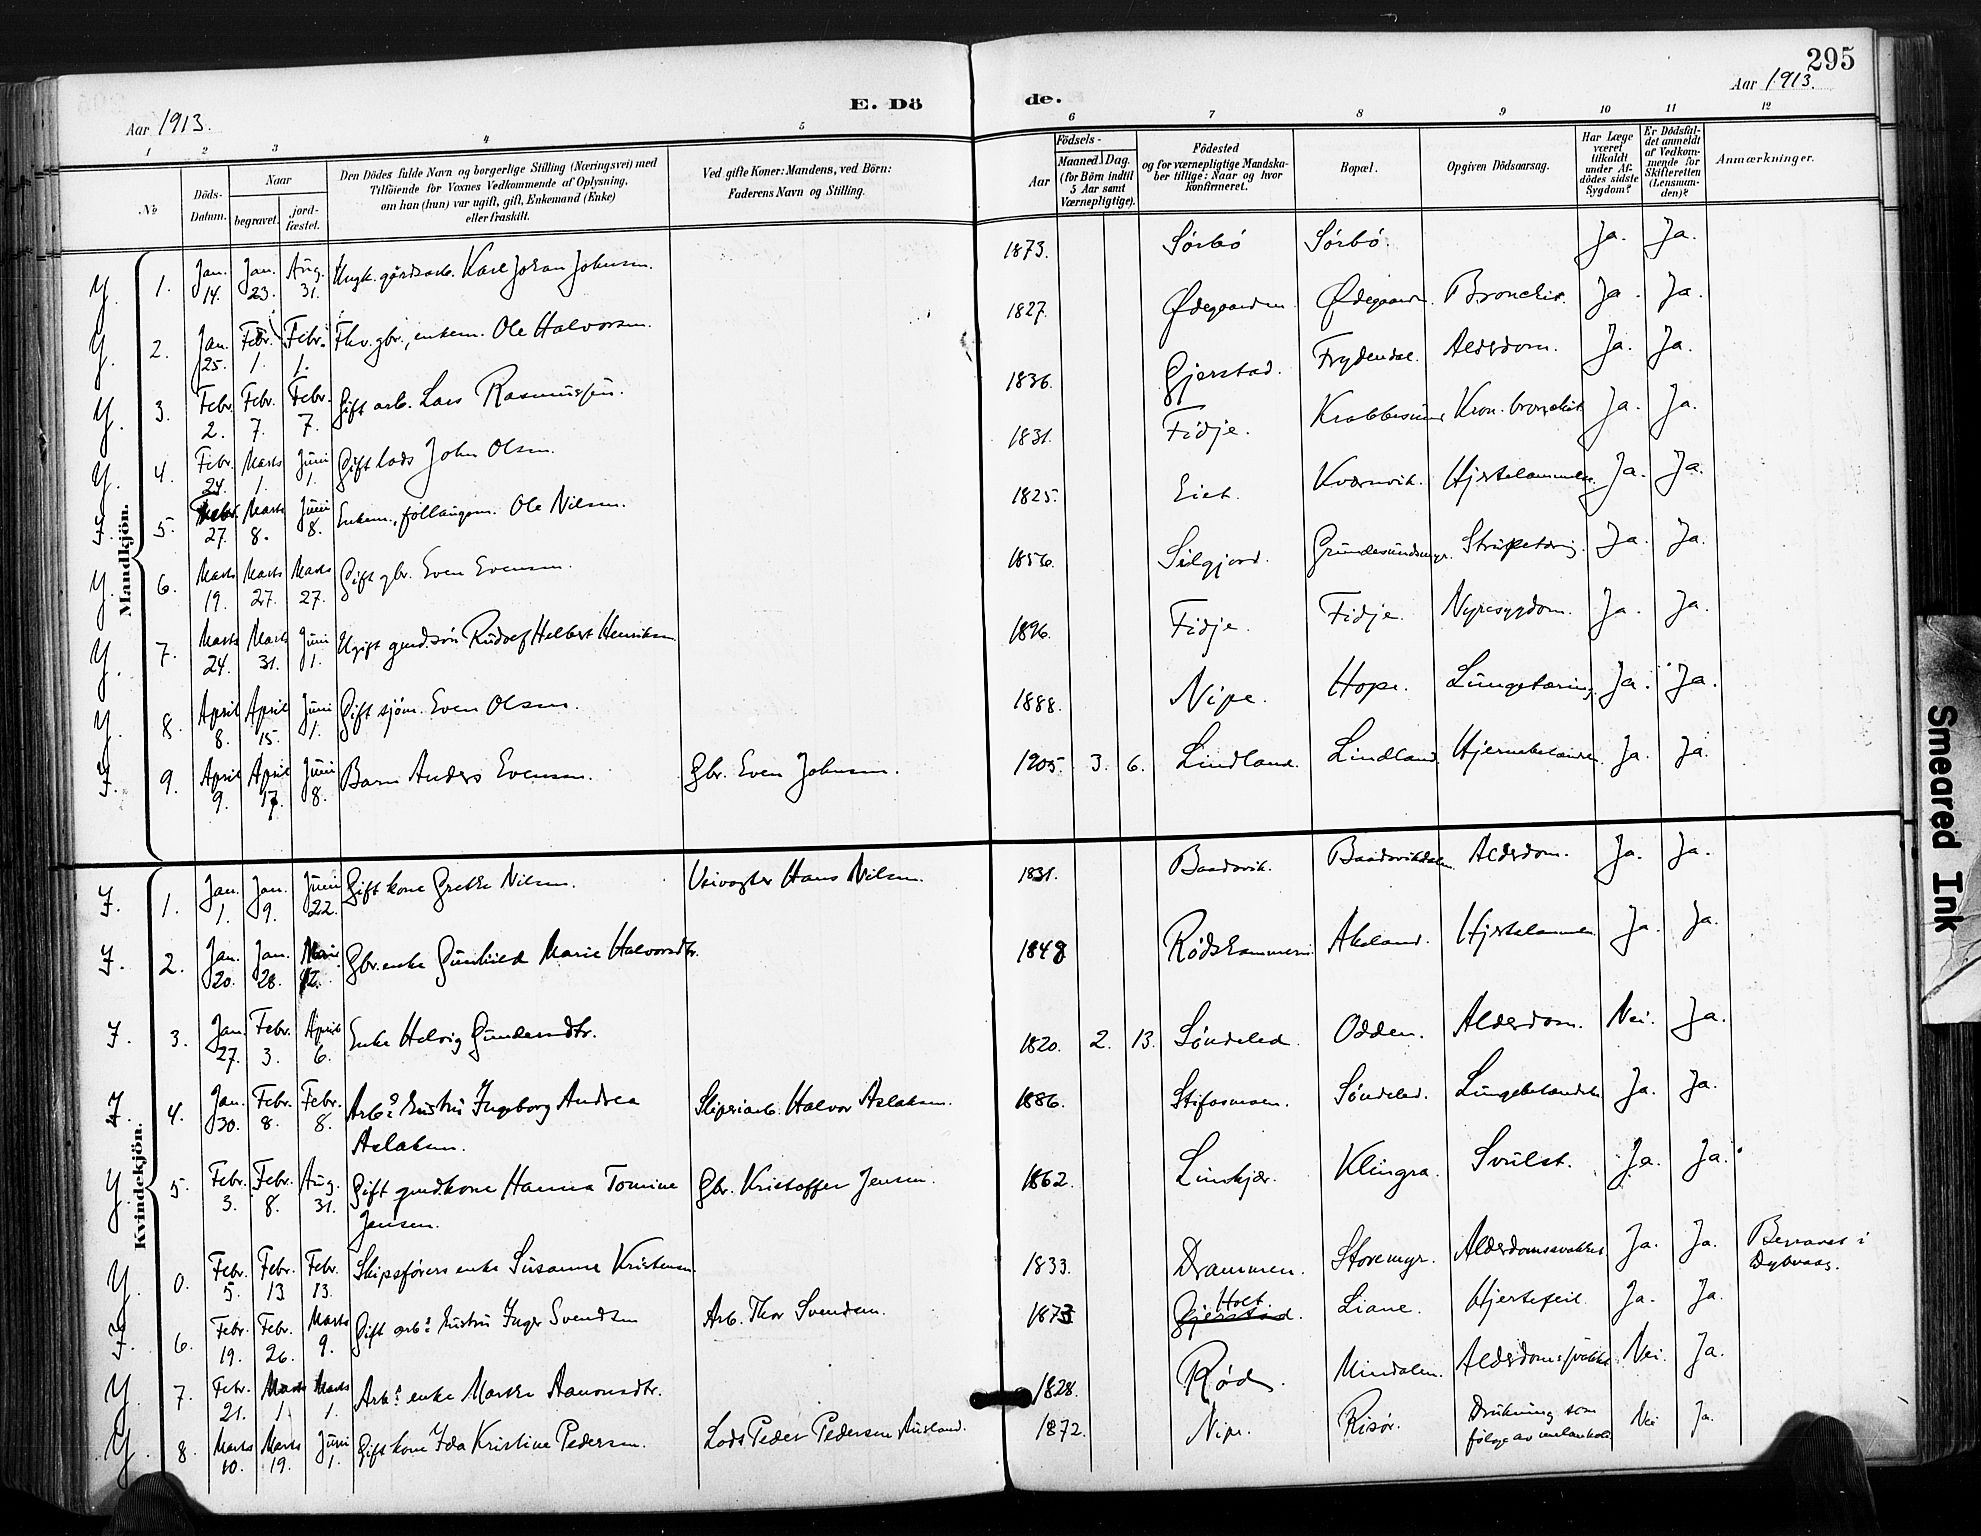 295
Aar 1913.
E. Dö
de.
Aar 1913.
1 2 3 4 5 6 7 8 9 10 11 12
No
Döds-
Datum.
Naar
begravet.
jord-
fæstet.
Den Dödes fulde Navn og borgerlige Stilling (Næringsvei) med
Tilföiende for Voxnes Vedkommende af Oplysning,
om han (hun) var ugift, gift, Enkemand (Enke)
eller fraskilt.
Ved gifte Koner: Mandens, ved Börn:
Faderens Navn og Stilling.
Födsels-
Aar
Maaned. Dag.
(for Börn indtil
5 Aar samt
Værnepligtige).
Födested
og for værnepligtige Mandska-
ber tillige: Naar og hvor
konfirmeret.
Bopæl.
Opgiven Dödsaarsag.
Har Læge
været
tilkaldt
under Af-
dödes sidste
Sygdom?
Er Dödsfal-
det anmeldt
af Vedkom-
mende for
Skifteretten
(Lensman-
den)?
Anmærkninger.
Mandkjön.
Y. 1. Jan. 14. Jan. 23. Aug. 31. Ungk. gårdsarb. Karl Johan Johnsen. 1873. Sörbö Sörbö. Ja. Ja.
Y. 2. Jan. 25. Febr. 1. Febr. 1. Fhv. gbr., enkem. Ole Halvorsen. 1827. Ødegaarden. Ødegaarden. Bronchit. Ja. Ja.
Y. 3. Febr. 2. Febr. 7. Febr. 7. Gift arb. Lars Rasmussen. 1836. Gjerstad. Frydendal. Alderdom. Ja. Ja.
Y. 4. Febr. 24. Marts 1. Juni 1. Gift lods John Olsen. 1831. Fidje. Krabbesund Kron. bronchit Ja. Ja.
F. 5. Febr. 27. Marts 8. Juni 8. Enkem., föllaugsm. Ole Nilsen. 1825. Eiet. Kværnvik. Hjertelammelse. Ja. Ja.
Y. 6. Marts 19. Marts 27. Marts 27. Gift gbr. Even Evensen. 1856. Silgjord. Grundesundmyr. Strupetæring. Ja. Ja.
Y. 7. Marts 24. Marts 31. Juni 1. Ugift gmd.sön Rudolf Helbert Henriksen. 1896. Fidje. Fidje. Nyresygdom. Ja. Ja.
Y. 8. April 8. April 15. Juni 1. Gift sjöm. Even Olsen. 1888. Nipe. Hope. Lungetæring. Ja. Ja.
F. 9. April 9. April 17. Juni 8. Barn Anders Evensen. Gbr. Even Johnsen. 1905. 3. 6. Lindland. Lindland. Hjernebetændelse. Ja. Ja.
Kvindekjön.
F. 1. Jan. 1. Jan. 9. Juni 22. Gift kone Grethe Nilsen. Veivogter Hans Nilsen. 1831. Baasvik. Baasvikdalen. Alderdom. Ja. Ja.
F. 2. Jan. 20. Jan. 28. 12. Gbr.enke Gunhild Marie Halvorsdtr. 1848 Rödskammeren Akeland. Hjertelammelse Ja. Ja.
F. 3. Jan. 27. Febr. 3. April 6. Enke Helvig Gundersdtr. 1820. 2. 13. Søndeled. Odden. Alderdom. Nei. Ja.
F. 4. Jan. 30. Febr. 8. Febr. 8. Arb.s hustru Ingeborg Andrea
Aslaksen. Sliperiarb. Halvor Aslaksen. 1886. Stifosmoen. Søndeled. Lungebetændelse Ja. Ja.
Y. 5. Febr. 3. Febr. 8. Aug. 31. Gift gmd.kone Hanna Tomine
Jensen. Gbr. Kristoffer Jensen. 1862. Linkjær. Klingra. Svulst. Ja. Ja.
Y. 0. Febr. 5. Febr. 13 Febr. 13. Skipsførers enke Susanne Kristensen. 1833. Drammen. Storemyr. Alderdomssvakhet Ja. Ja. Begravet i
Dybvaag.
F. 6. Febr. 19. Febr. 26. Marts 9. Gift arb.s hustru Inger Svendsen Arb. Thor Svendsen. 1873 Holt Gjerstad. Liane. Hjertefeil. Ja. Ja.
Y. 7. Febr. 21. Marts 1. Marts 1. Arb.s enke Marthe Aanonsdtr. 1828. Röd. Mindalen. Alderdomssvakhet Nei. Ja.
Y. 8. Marts 10. Marts 19. Juni 1. Gift kone Ida Kristine Pedersen. Lods Peder Pedersen Ausland. 1872. Nipe. Risör. Drukning som
følge av melankoli Nei Ja.
Smeared Ink